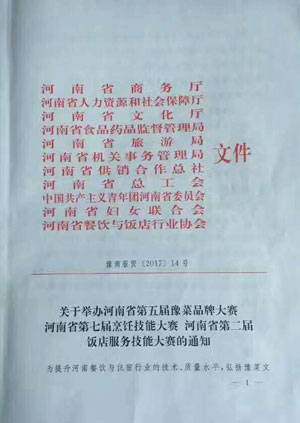 河南省商务厅
河南省人力资源和社会保障厅
河南省文化厅
河南省食品药品监督管理局
河南省旅游局
河南省机关事务管理局
河南省供销合作总社
河南省总工会
中国共产主义青年团河南省委员会
河南省妇女联合会
河南省餐饮与饭店行业协会
文件
豫商服贸〔2017〕14号
关于举办河南省第五届豫菜品牌大赛
河南省第七届烹饪技能大赛 河南省第二届
饭店服务技能大赛的通知
为提升河南餐饮与住宿行业的技术、质量水平，弘扬豫菜文
— 1 —